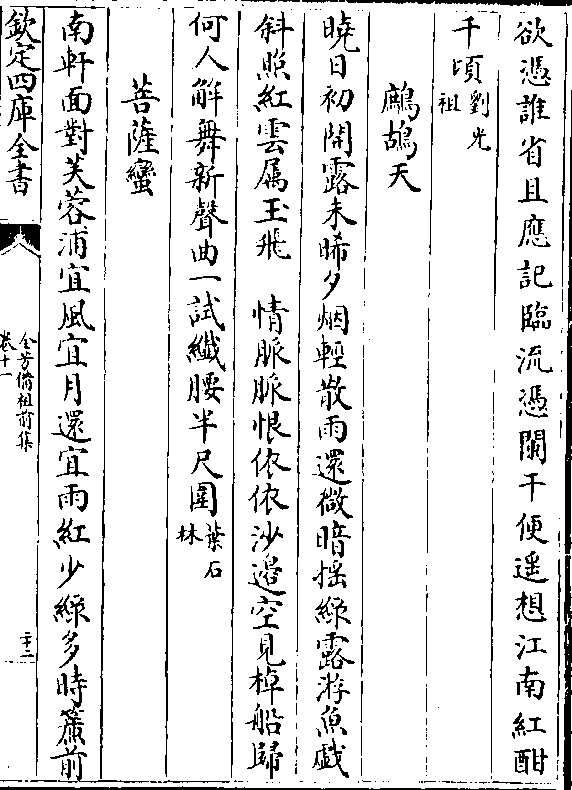 欲憑誰省且應記臨流憑闌干便遥想江南紅酣
千頃劉光祖
鷓鴣天
曉日初開露未晞夕烟輕散雨還微暗揺緑露游魚戯
斜照紅雲属玉飛　情脈脈恨依依沙邉空見棹船歸
何人解舞新聲曲一試纖腰半尺圍葉石林
菩薩蠻
南軒面對芙蓉浦宜風宜月還宜雨紅少緑多時簾前
欽定四庫全書
全芳備祖前集
卷十一
二十二